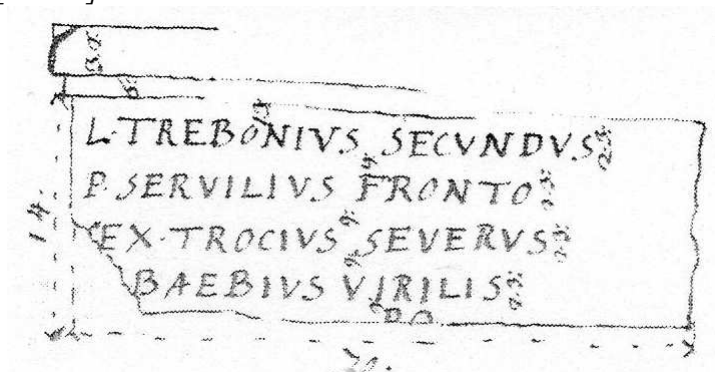 L. TREBONIVS SECVNDVS
P. SERVILIVS FRONTO
EX. TROCIVS SEVERVS
BAEBIVS VIRILIS
14.